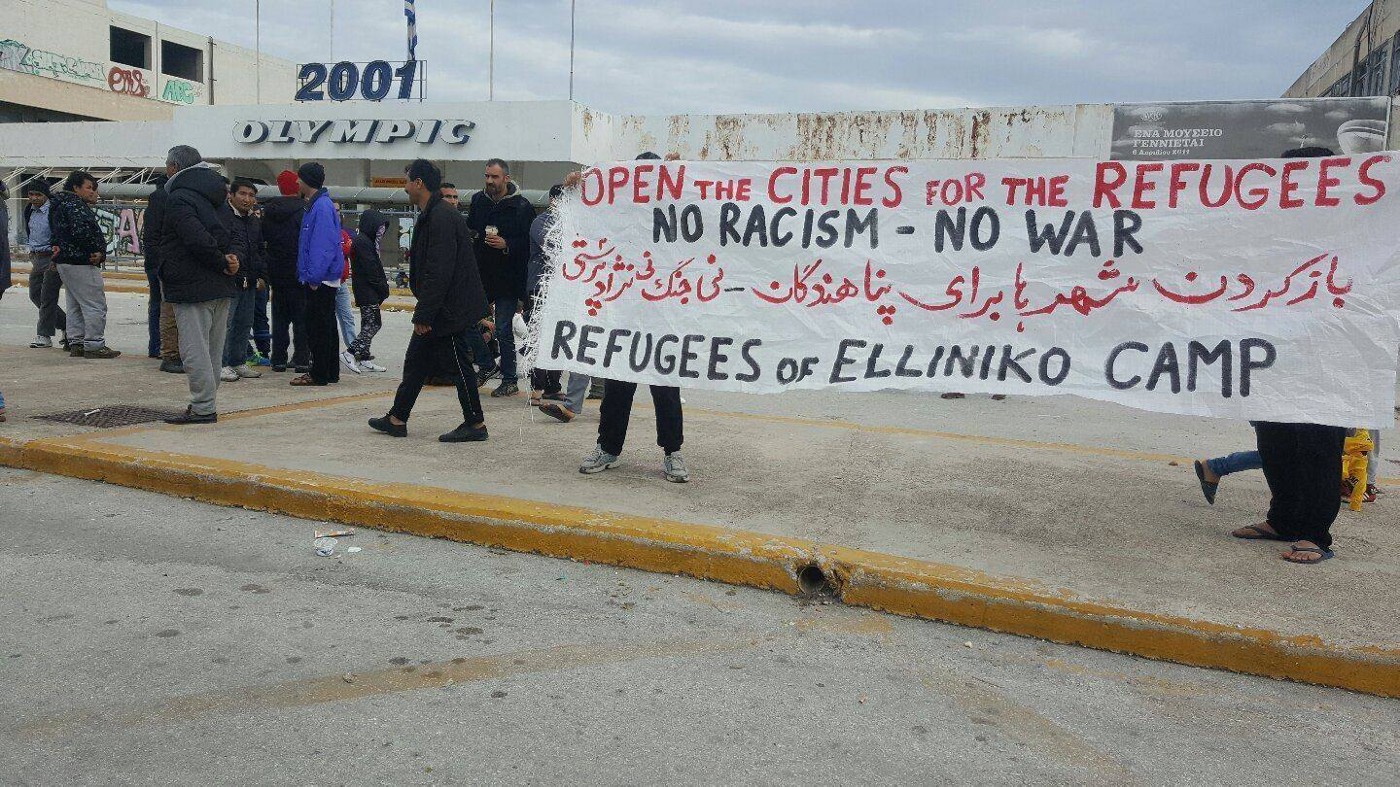 2001
OLYMPIC
ΕΝΑ ΜΟΥΣΕΙΟ
ΓΕΝΝΙΕΤΑΙ
OPEN THE CITIES FOR THE REFUGEES
NO RACISM - NO WAR
بازکردن شهرها برای پناهندگان - نی جنگ نی نژادپرستی
REFUGEES OF ELLINIKO CAMP